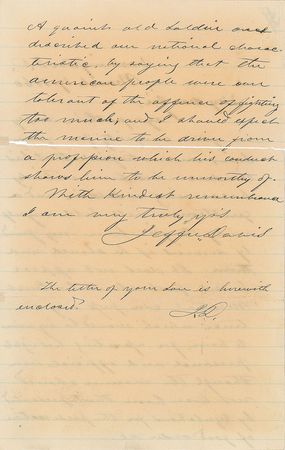 A quaint old Soldier once
described our national charac-
teristic, by saying that the
American people were over
tolerant of the offence of fighting
too much, and I should expect
the marine to be driven from
a profession which his conduct
shows him to be unworthy of.
With kindest remembrance
I am very truly yrs
Jefferson Davis
The letter of your Son is herewith
enclosed.
J.D.